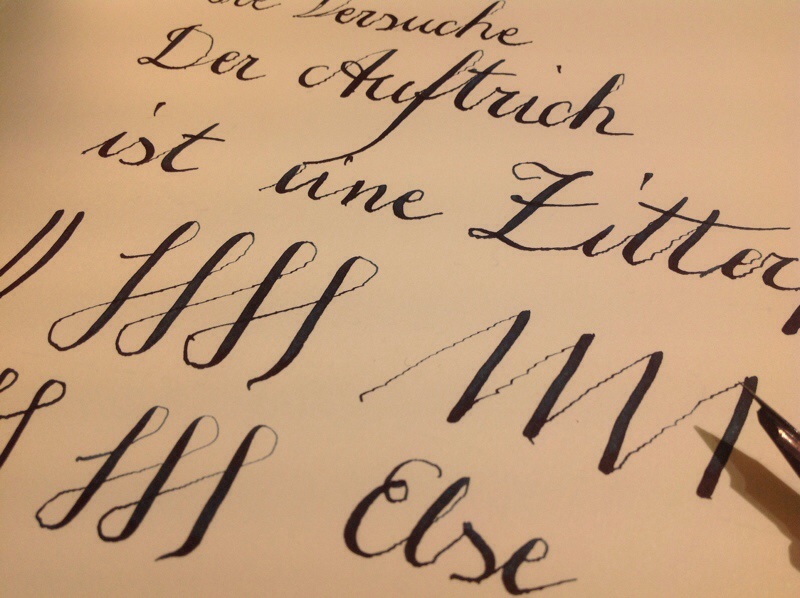 Versuche
Der Auftrich
ist eine Zitter
Else